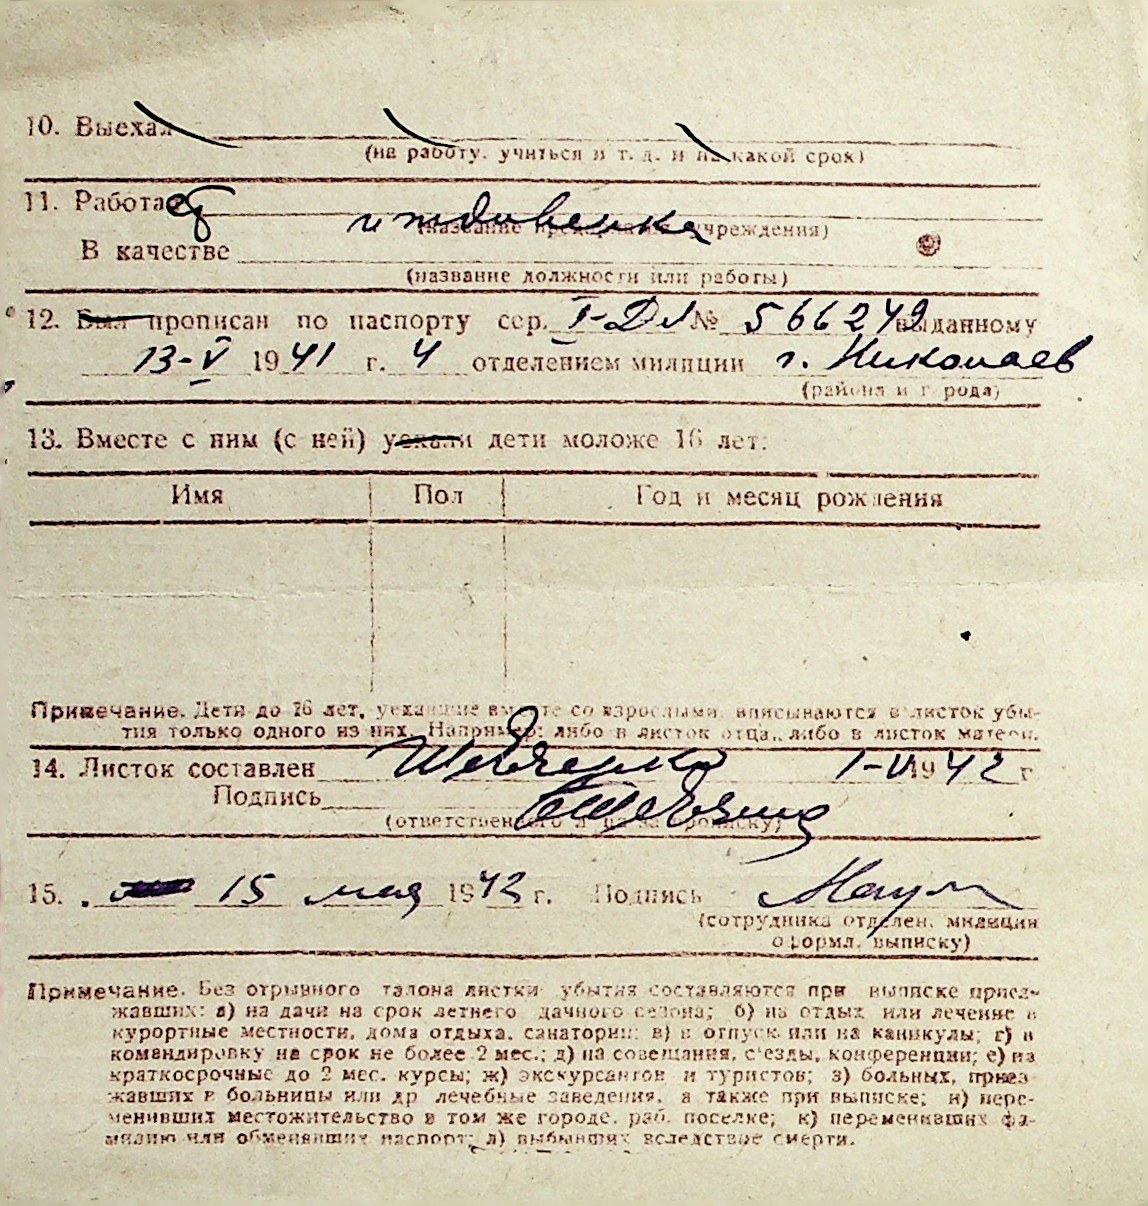 10. Выехал
(на работу, учиться и т. д. и на какой срок)
11. Работает
иждивенка
(название предприятия, учреждения)
В качестве
(название должности или работы)
12. Был прописан по паспорту сер. I-ДЛ № 566249 выданному
13-V 1941 г. 4 отделением милиции г. Николаев
(района и города)
13. Вместе с ним (с ней) уехали дети моложе 16 лет:
Имя Пол Год и месяц рождения
Примечание. Дети до 16 лет, уехавшие вместе со взрослыми, вписываются в листок убы-
тия только одного из них. Например: либо в листок отца, либо в листок матери.
14. Листок составлен Шевченко 1-VI 1942 г
Подпись
(ответственного л. за прописку)
15. 15 мая 1942 г. Подпись
(сотрудника отделен. милиции
оформл. выписку)
Примечание. Без отрывного талона листки убытия составляются при выписке приез-
жавших: а) на дачи на срок летнего дачного сезона; б) на отдых или лечение в
курортные местности, дома отдыха, санатории; в) в отпуск или на каникулы; г) в
командировку на срок не более 2 мес.; д) на совещания, с'езды, конференции; е) на
краткосрочные до 2 мес. курсы; ж) экскурсантов и туристов; з) больных, приез-
жавших в больницы или др лечебные заведения, а также при выписке; и) пере-
менивших местожительство в том же городе, раб. поселке; к) переменивших фа-
милию или обменявших паспорт; л) выбывших вследствие смерти.